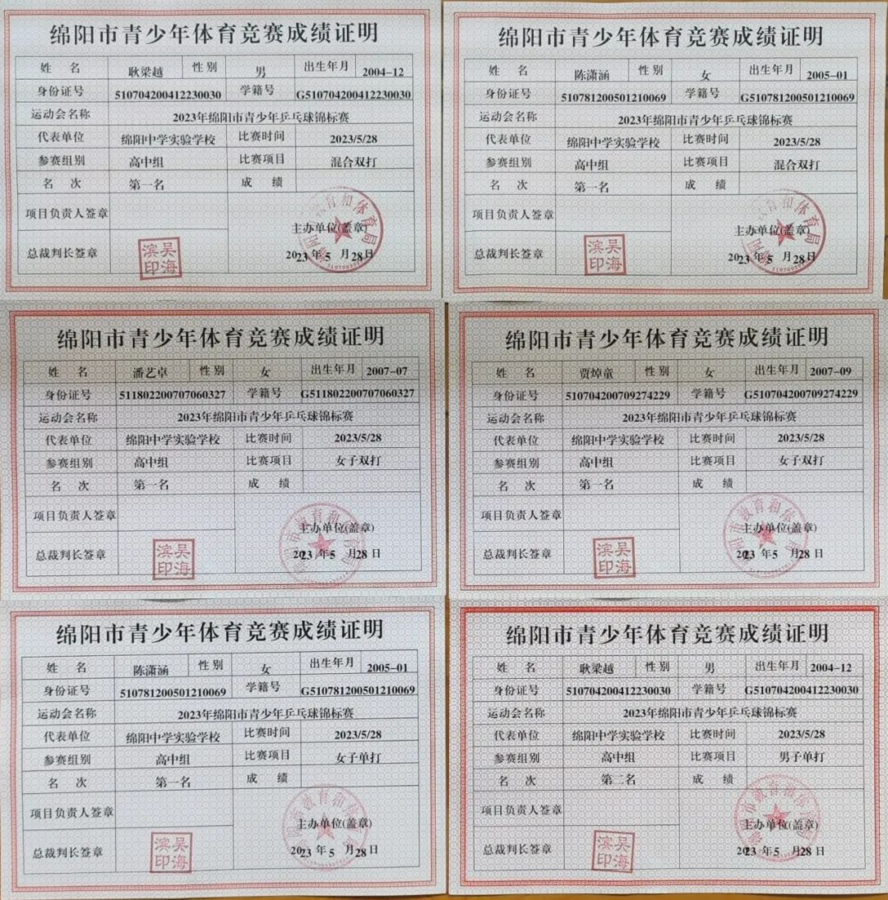 绵阳市青少年体育竞赛成绩证明
姓 名 耿梁越 性别 男 出生年月 2004-12
身份证号 510704200412230030 学籍号 G510704200412230030
运动会名称 2023年绵阳市青少年乒乓球锦标赛
代表单位 绵阳中学实验学校 比赛时间 2023/5/28
参赛组别 高中组 比赛项目 混合双打
名 次 第一名 成 绩
项目负责人签章
主办单位(盖章)
总裁判长签章 吴海滨印 2023年5月28日
绵阳市青少年体育竞赛成绩证明
姓 名 陈潇涵 性别 女 出生年月 2005-01
身份证号 510781200501210069 学籍号 G510781200501210069
运动会名称 2023年绵阳市青少年乒乓球锦标赛
代表单位 绵阳中学实验学校 比赛时间 2023/5/28
参赛组别 高中组 比赛项目 混合双打
名 次 第一名 成 绩
项目负责人签章
主办单位(盖章)
总裁判长签章 吴海滨印 2023年5月28日
绵阳市青少年体育竞赛成绩证明
姓 名 潘艺卓 性别 女 出生年月 2007-07
身份证号 511802200707060327 学籍号 G511802200707060327
运动会名称 2023年绵阳市青少年乒乓球锦标赛
代表单位 绵阳中学实验学校 比赛时间 2023/5/28
参赛组别 高中组 比赛项目 女子双打
名 次 第一名 成 绩
项目负责人签章
主办单位(盖章)
总裁判长签章 吴海滨印 2023年5月28日
绵阳市青少年体育竞赛成绩证明
姓 名 贾焯童 性别 女 出生年月 2007-09
身份证号 510704200709274229 学籍号 G510704200709274229
运动会名称 2023年绵阳市青少年乒乓球锦标赛
代表单位 绵阳中学实验学校 比赛时间 2023/5/28
参赛组别 高中组 比赛项目 女子双打
名 次 第一名 成 绩
项目负责人签章
主办单位(盖章)
总裁判长签章 吴海滨印 2023年5月28日
绵阳市青少年体育竞赛成绩证明
姓 名 陈潇涵 性别 女 出生年月 2005-01
身份证号 510781200501210069 学籍号 G510781200501210069
运动会名称 2023年绵阳市青少年乒乓球锦标赛
代表单位 绵阳中学实验学校 比赛时间 2023/5/28
参赛组别 高中组 比赛项目 女子单打
名 次 第一名 成 绩
项目负责人签章
主办单位(盖章)
总裁判长签章 吴海滨印 2023年5月28日
绵阳市青少年体育竞赛成绩证明
姓 名 耿梁越 性别 男 出生年月 2004-12
身份证号 510704200412230030 学籍号 G510704200412230030
运动会名称 2023年绵阳市青少年乒乓球锦标赛
代表单位 绵阳中学实验学校 比赛时间 2023/5/28
参赛组别 高中组 比赛项目 男子单打
名 次 第二名 成 绩
项目负责人签章
主办单位(盖章)
总裁判长签章 吴海滨印 2023年5月28日